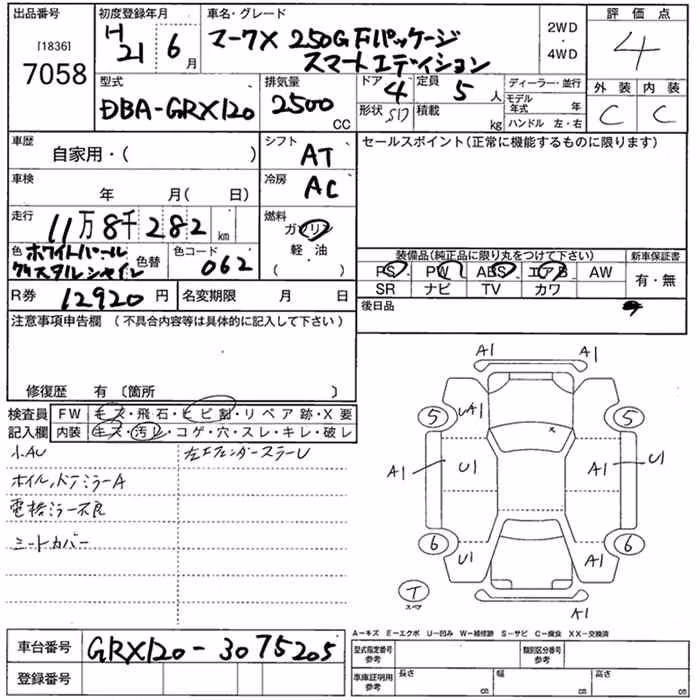 出品番号 初度登録年月 車名・グレード 2WD・4WD 評価点
[1836]
7058
H21 6月
マークX 250G Fパッケージ
スマートエディション
4
型式 排気量 ドア 定員 ディーラー・並行 外装 内装
DBA-GRX120 2500CC 4 5人 モデル年式 年 C C
形状 積載 kg ハンドル 左・右
車歴 シフト セールスポイント(正常に機能するものに限ります)
自家用・( ) AT
車検 冷房
年 月( 日) AC
走行 燃料
11万8千282km ガソリン
軽・油
( )
色 ホワイトパール 色替 色コード 062
クリスタルシャイン
装備品(純正品に限り丸をつけて下さい) 新車保証書
PS PW ABS エアB AW 有・無
SR ナビ TV カワ
R券 12920円 名変期限 月 日 後日品
注意事項申告欄 (不具合内容等は具体的に記入して下さい)
修復歴 有 〔箇所 〕
検査員 FW キズ・飛石・ヒビ割・リペア跡・X要
記入欄 内装 キズ・汚レ・コゲ・穴・スレ・キレ・破レ
小AU
ホイル,ドアミラーA
電格ミラー不良
シートカバー
A1 A1
5 UA1 5
A1 U1 A1 U1
6 U1 A1 6
T
スペア
A1
A-キズ E-エクボ U-凹み W-補修跡 S-サビ C-腐食 XX-交換済
車台番号 GRX120-3075205
登録番号
型式指定番号 参考 類別区分番号 参考
車庫証明用 参考 長さ cm 幅 cm 高さ cm